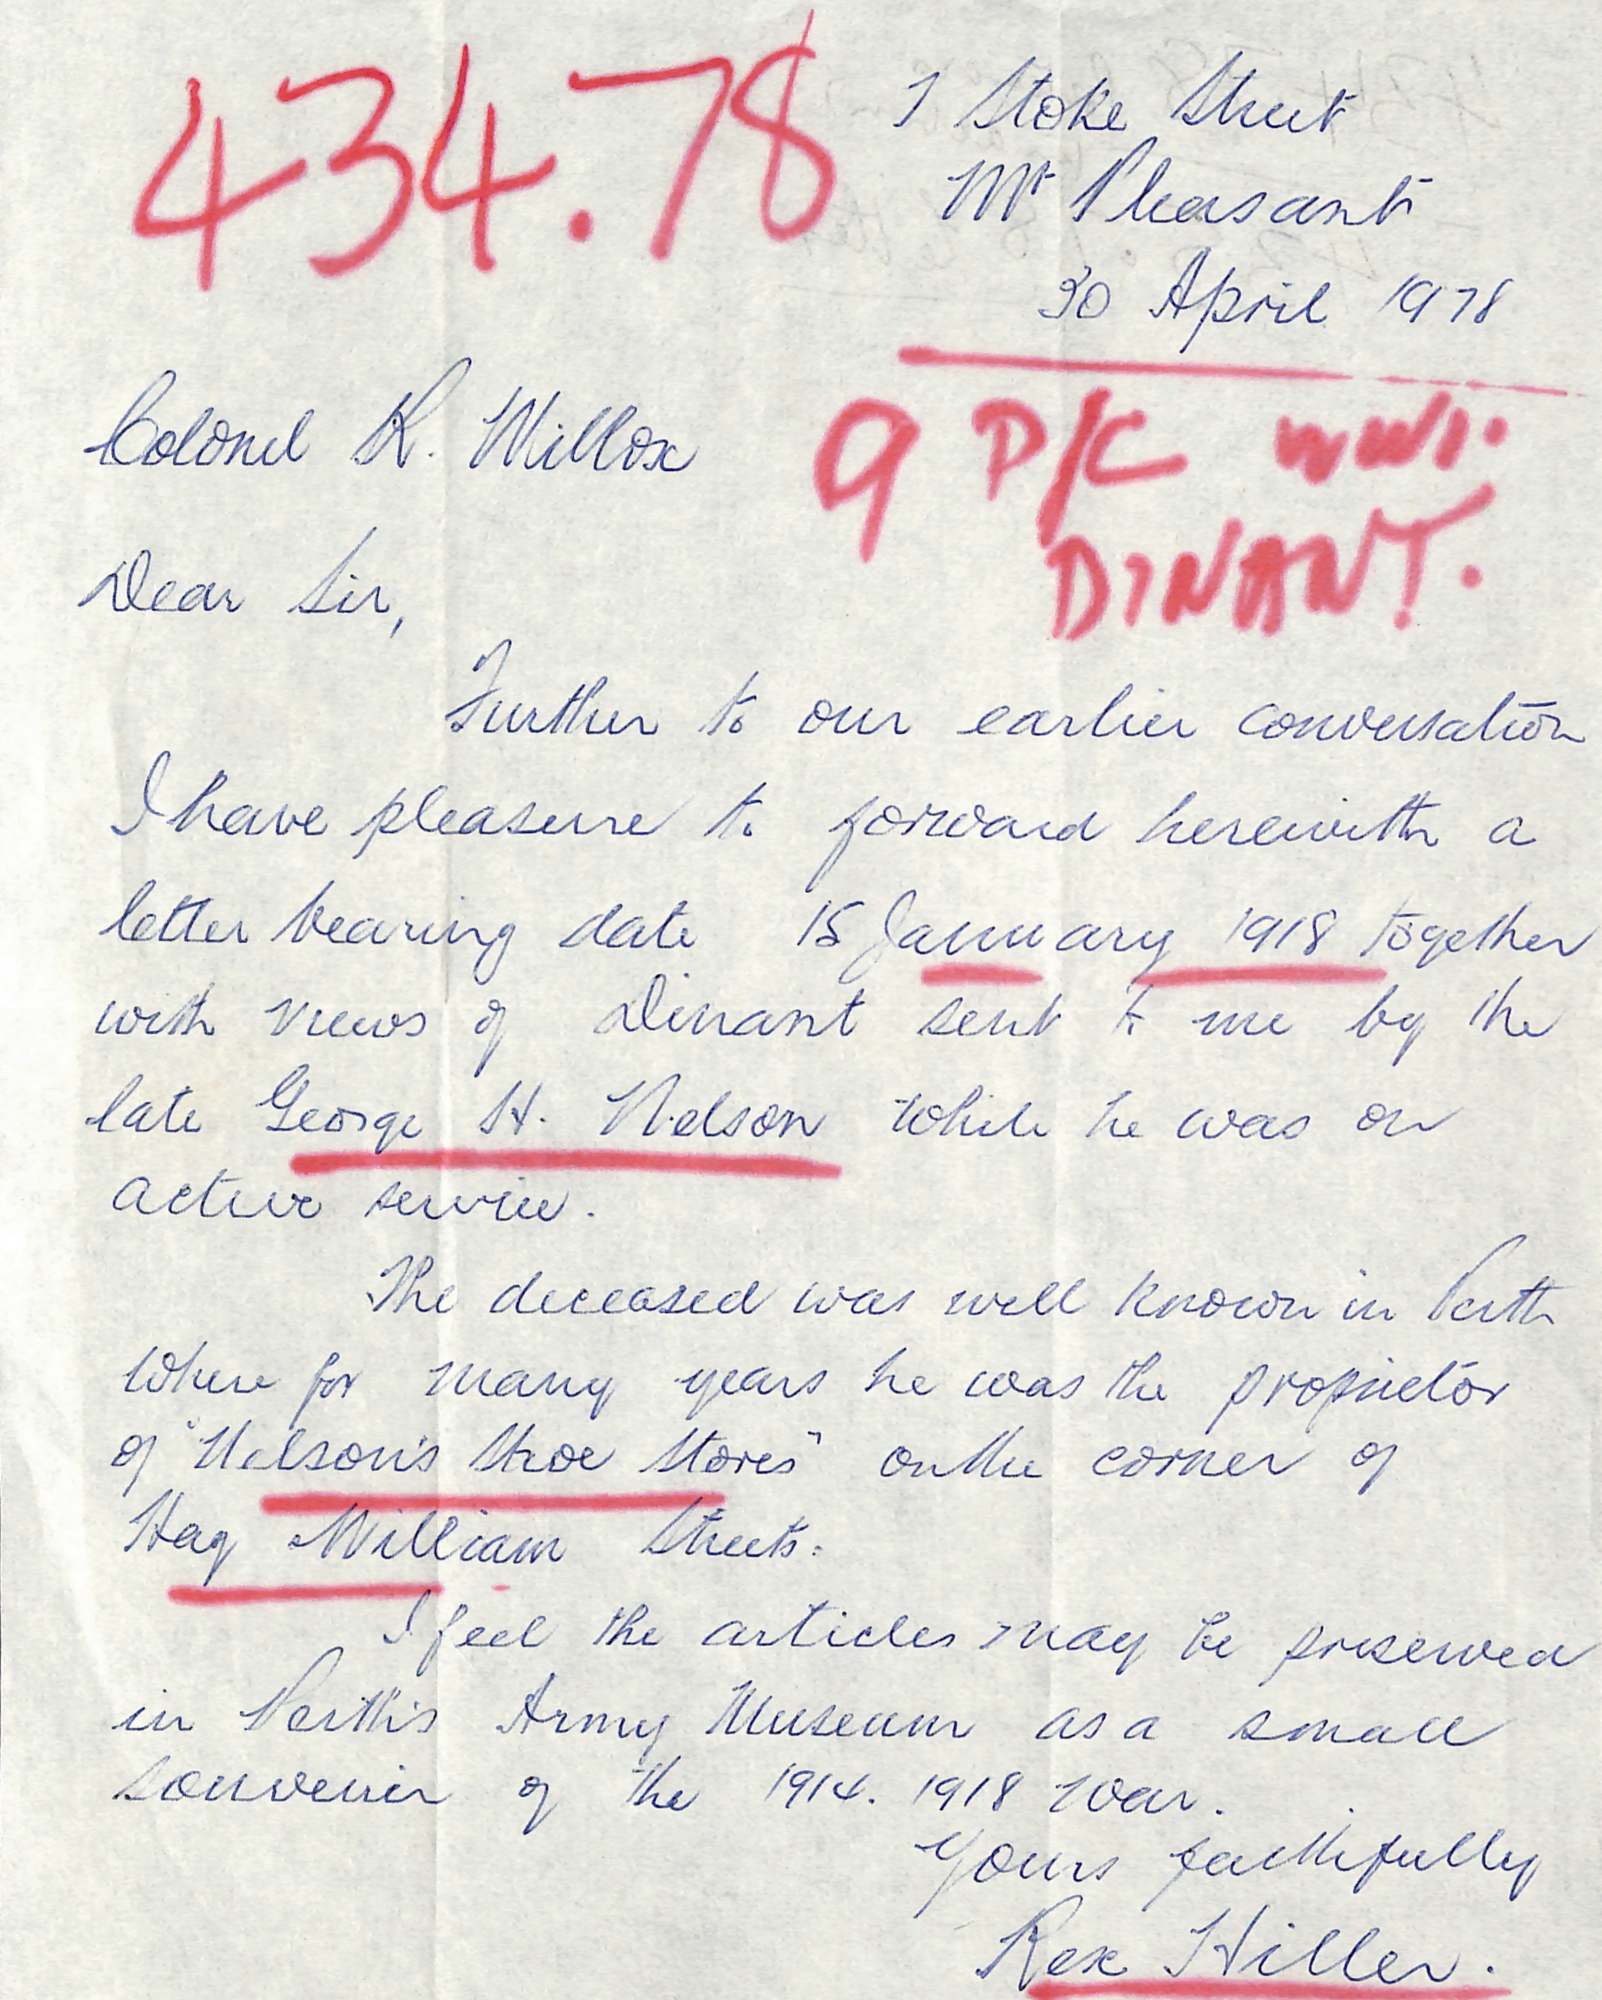 434.78
7 Stoke Street
Mt Pleasant
30 April 1978
9 P/C WW1.
DINANT.
Colonel K. Millox
Dear Sir,
Further to our earlier conversation
I have pleasure to forward herewith a
letter bearing date 15 January 1918 together
with views of Dinant sent to me by the
late George H. Nelson while he was on
active service.
The deceased was well known in Perth
where for many years he was the proprietor
of "Nelson's Shoe Stores" on the corner of
Hay William Streets.
I feel the articles may be preserved
in Perth's Army Museum as a small
souvenir of the 1914.1918 war.
Yours faithfully
Rex Hiller.